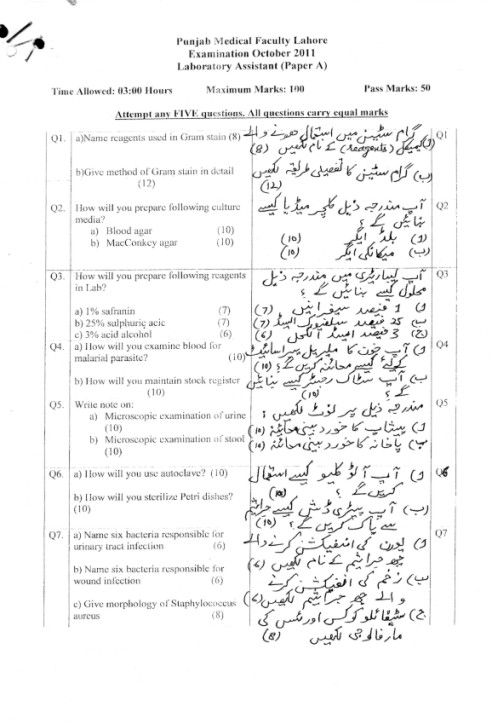 Punjab Medical Faculty Lahore
Examination October 2011
Laboratory Assistant (Paper A)
Time Allowed: 03:00 Hours Maximum Marks: 100 Pass Marks: 50
Attempt any FIVE questions. All questions carry equal marks
Q1. a)Name reagents used in Gram stain (8)
b)Give method of Gram stain in detail
(12)
گرام سٹین میں استعمال ہونے والے Q1
کیمیکل (Reagents) کے نام لکھیں (8)
ب) گرام سٹین کا تفصیلی طریقہ لکھیں
(12)
Q2. How will you prepare following culture
media?
a) Blood agar (10)
b) MacConkey agar (10)
آپ مندرجہ ذیل کلچر میڈیا کیسے Q2
بنائیں گے ؟
ا) بلڈ ایگر (10)
ب) میکانکی ایگر (10)
Q3. How will you prepare following reagents
in Lab?
a) 1% safranin (7)
b) 25% sulphuric acic (7)
c) 3% acid alcohol (6)
آپ لیبارٹری میں مندرجہ ذیل Q3
محلول کیسے بنائیں گے ؟
ا) 1 فیصد سیفرانین (7)
ب) 25 فیصد سلفیورک ایسڈ (7)
ج) 3 فیصد ایسڈ الکحل (6)
Q4. a) How will you examine blood for
malarial parasite? (10)
b) How will you maintain stock register
(10)
ا) آپ خون کا ملیریل پیراسائیٹ Q4
کیلئے کیسے معائنہ کریں گے؟ (10)
ب) آپ سٹاک رجسٹر کیسے بنائیں
گے ؟ (10)
Q5. Write note on:
a) Microscopic examination of urine
(10)
b) Microscopic examination of stool
(10)
مندرجہ ذیل پر نوٹ لکھیں : Q5
ا) پیشاب کا خوردبینی معائنہ (10)
ب) پاخانہ کا خوردبینی معائنہ (10)
Q6. a) How will you use autoclave? (10)
b) How will you sterilize Petri dishes?
(10)
ا) آپ آٹو کلیو کیسے استعمال Q6
کریں گے ؟ (10)
ب) آپ پیٹری ڈش کیسے جراثیم
سے پاک کریں گے ؟ (10)
Q7. a) Name six bacteria responsible for
urinary tract infection (6)
b) Name six bacteria responsible for
wound infection (6)
c) Give morphology of Staphylococcus
aureus (8)
ا) یورن کی انفیکشن کرنے والے Q7
چھ جراثیم کے نام لکھیں (6)
ب) زخم کی انفیکشن کرنے
والے چھ جراثیم لکھیں (6)
ج) سٹیفائلوکوکس اوریئس کی
مارفالوجی لکھیں (8)